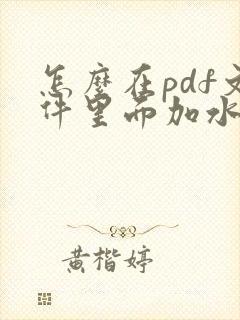 怎麼在pdf文
件里而加水
黄楷婷